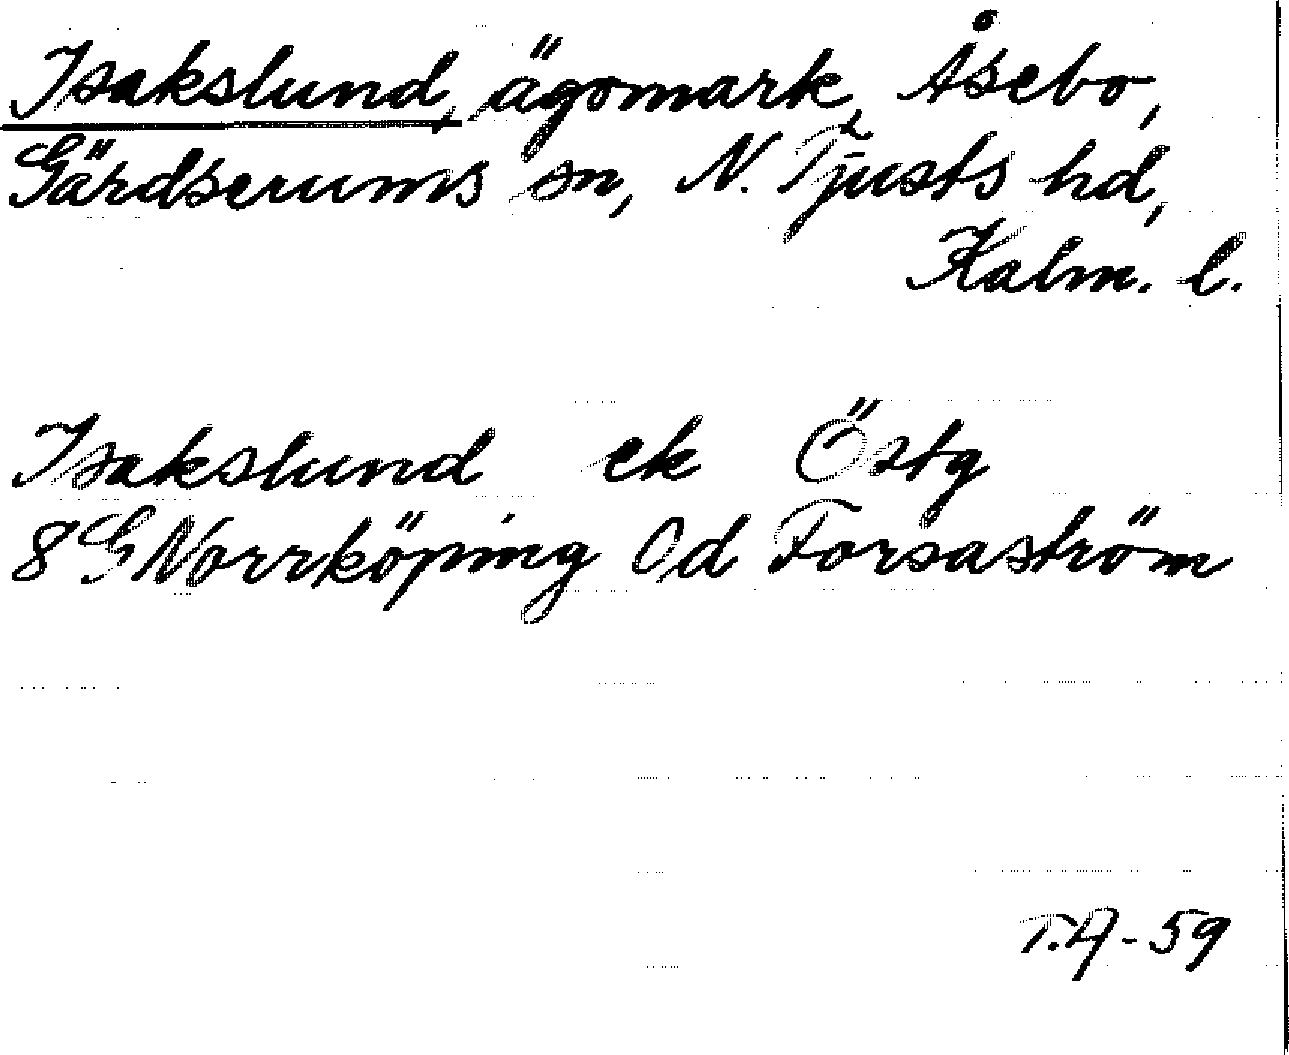 Isakslund, ägomark, Åsebo,
Gärdserums sn, N. Tjusts hd,
Kalm. l.
Isakslund ek Östg
8G Norrköping 0d Forsaström
T.A-59